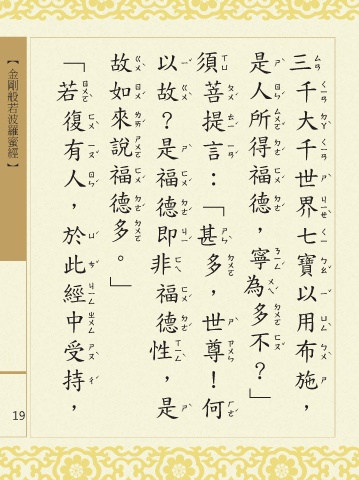 三千大千世界七寶以用布施，
是人所得福德，寧為多不？」
須菩提言：「甚多，世尊！何
以故？是福德即非福德性，是
故如來說福德多。」
「若復有人，於此經中受持，
【金剛般若波羅蜜經】
19